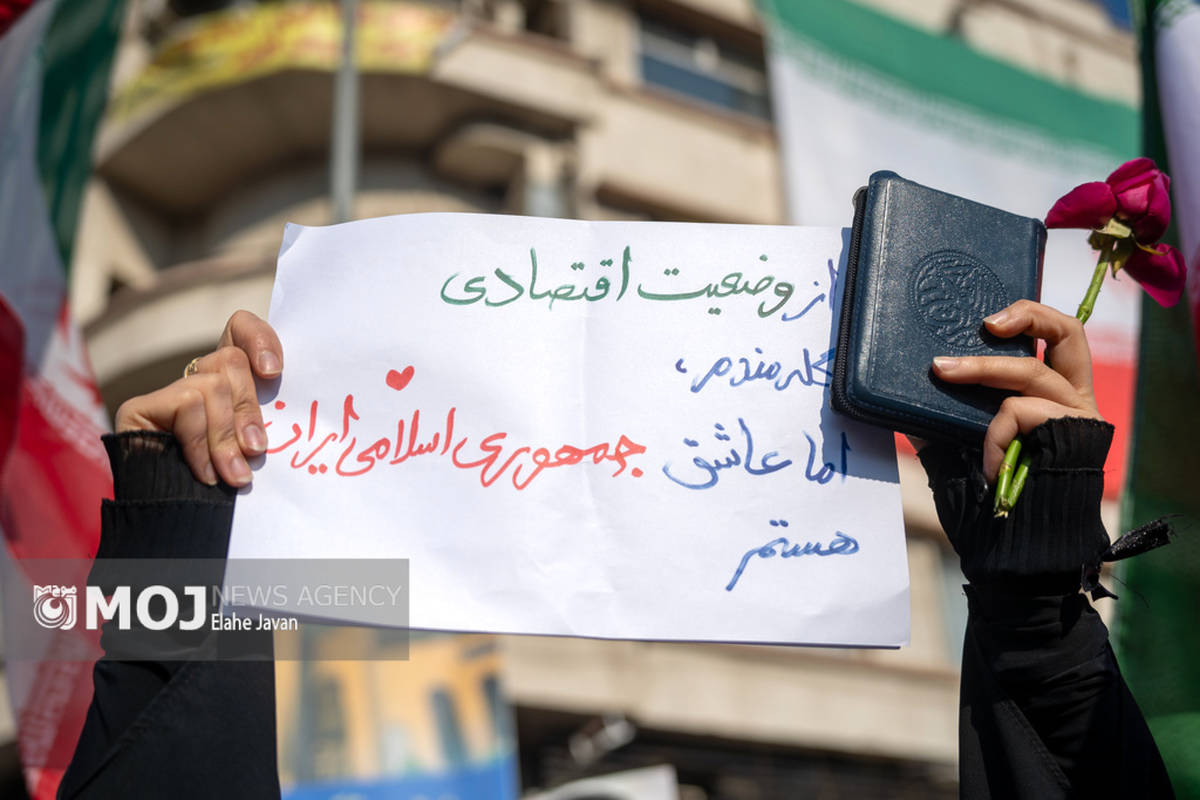 از وضعیت اقتصادی
گله‌مندم،
اما عاشق جمهوری اسلامی ایران
هستم
موج
MOJ NEWS AGENCY
Elahe Javan